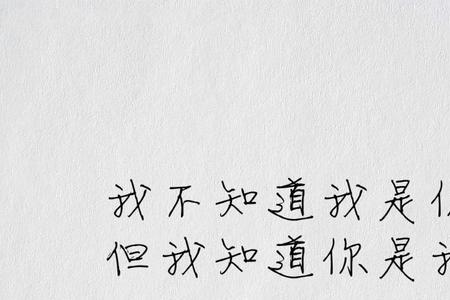 我不知道我是
但我知道你是